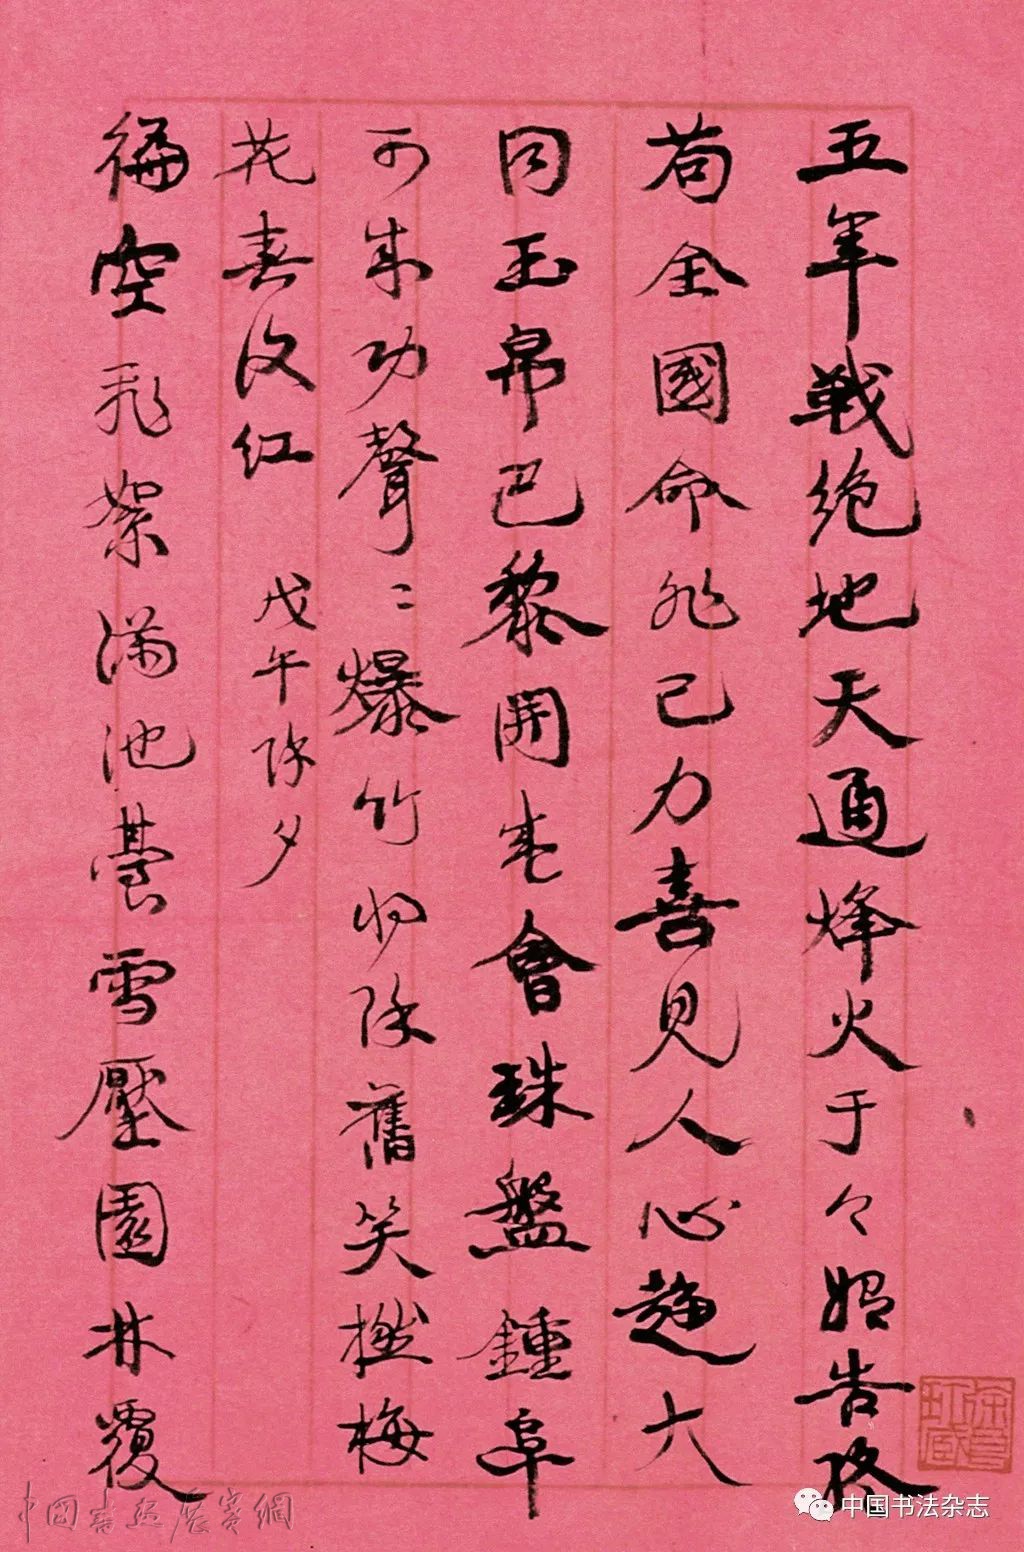 五年戰絕地天通烽火于今始告終
苟全國命非己力喜見人心趨大
同玉帛巴黎開盛會珠盤鍾阜
可成功聲〻爆竹將除舊笑撚梅
花 红 戊午除夕
徧空飛絮滿池臺雪壓園林覆
中國書法展賽網
中国书法杂志